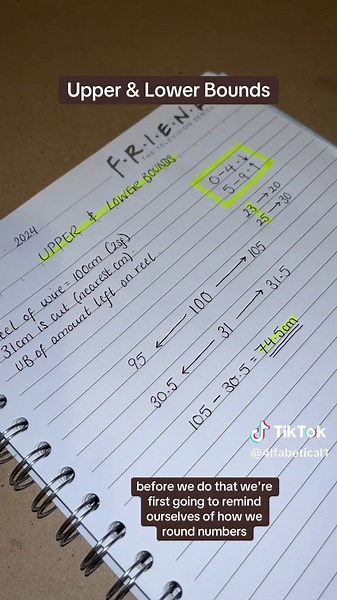 Upper & Lower Bounds
F·R·I·E·N
THE TELEVISION SERIES
2024
UPPER & LOWER BOUNDS
0-4·↓
5-9·↑
23→20
25→30
eel of wire = 100cm (2sf)
31cm is cut (nearest cm).
UB of amount left on reel
95 ← 100 → 105
30.5 ← 31 → 31.5
105 - 30.5 = 74.5cm
TikTok
@4lfabetical1
before we do that we're
first going to remind
ourselves of how we
round numbers